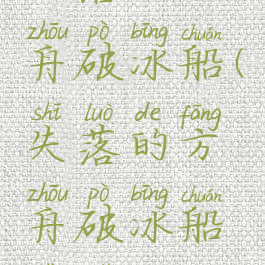 zhōu pò bīng chuán
舟破冰船(
shī luò de fāng
失落的方
zhōu pò bīng chuán
舟破冰船